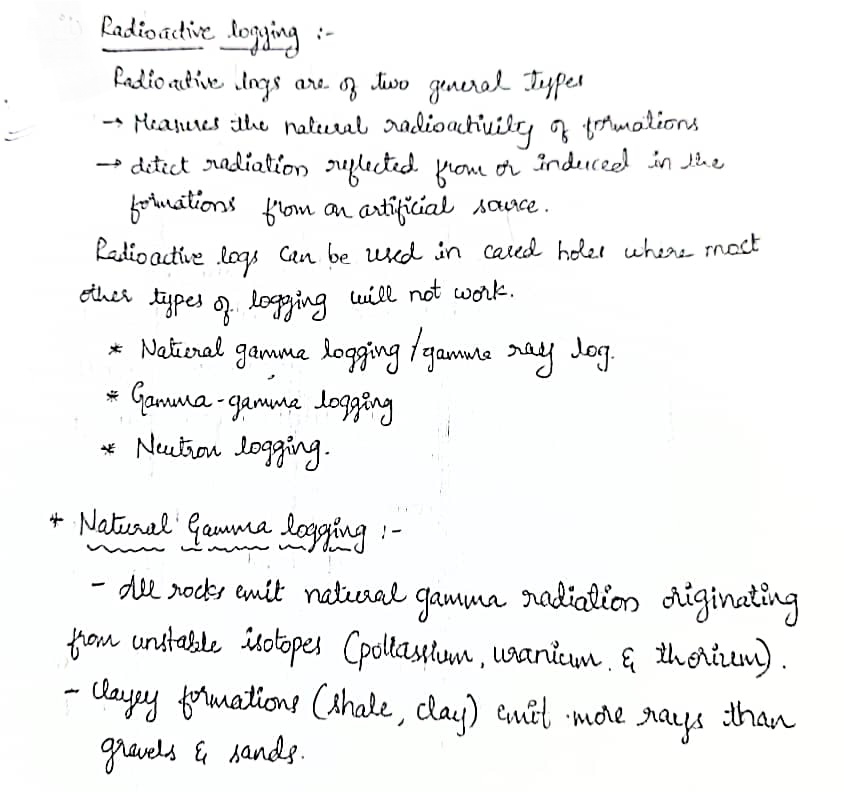 Radioactive logging :-
Radioactive logs are of two general types
→ Measures the natural radioactivity of formations
→ detect radiation reflected from or induced in the
formations from an artificial source.
Radioactive logs can be used in cased holes where most
other types of logging will not work.
* Natural gamma logging / gamma ray log.
* Gamma-gamma logging
* Neutron logging.
+ Natural Gamma logging :-
- All rocks emit natural gamma radiation originating
from unstable isotopes (pottassium, uranium, & thorium).
- Clayey formations (shale, clay) emit more rays than
gravels & sands.